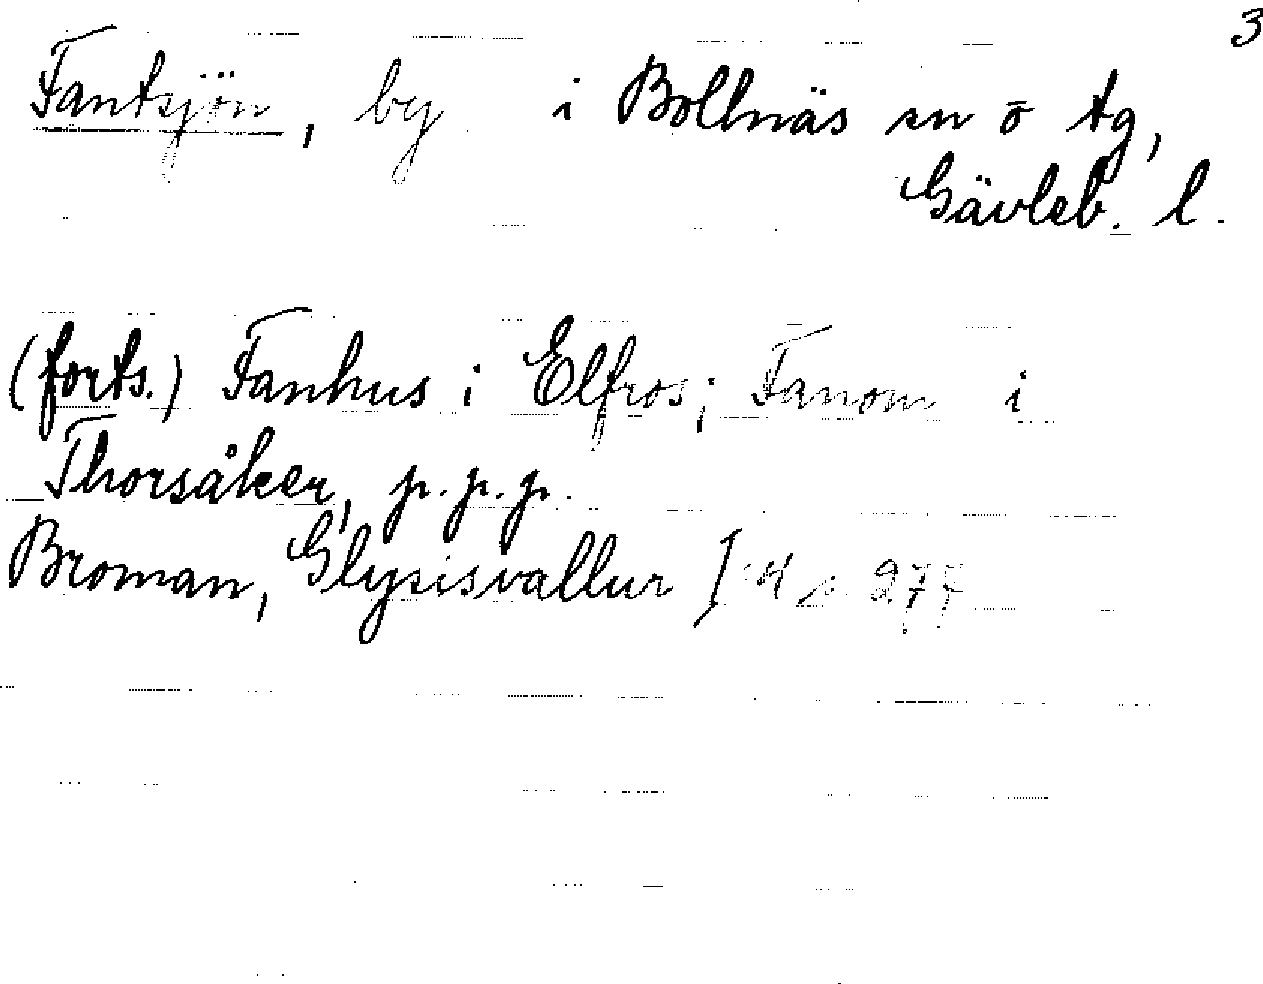 3
Fantsjön, by i Bollnäs sn o tg,
Gävleb. l.
(forts.) Fanhus i Elfros; Fanom i
Thorsåker, p.p.p.
Broman, Glysisvallur I: s. 277